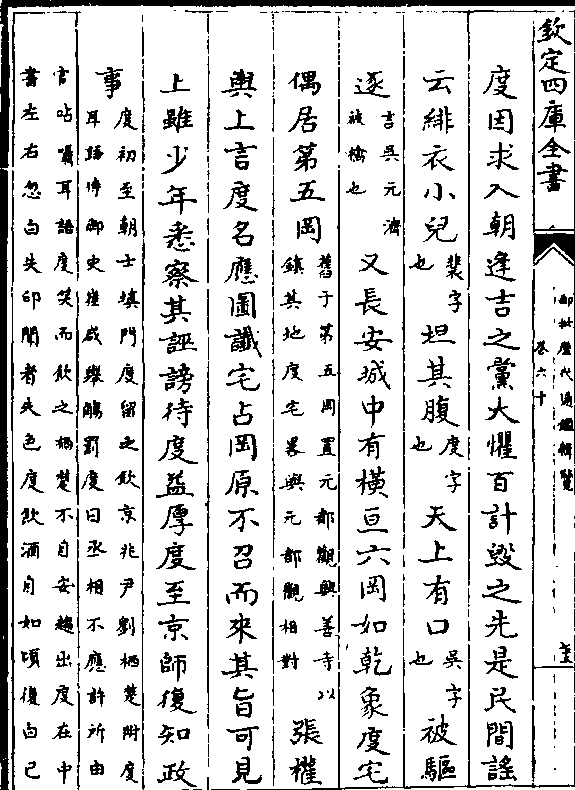 欽定四庫全書
御批歷代通鑑輯覽
卷六十
度因求入朝逢吉之黨大懼百計毀之先是民間謠
云緋衣小兒裴字也坦其腹度字也天上有口吳字也被驅
逐言吳元濟被擒也又長安城中有橫亘六岡如乾象度宅
偶居第五岡舊于第五岡置元都觀興善寺以鎮其地度宅畧與元都觀相對張權
輿上言度名應圖讖宅占岡原不召而來其旨可見
上雖少年悉察其誣謗待度益厚度至京師復知政
事度初至朝士填門度留之飲京兆尹劉栖楚附度耳語侍御史崔咸舉觴罰度曰丞相不應許所由
官呫囁耳語度笑而飲之栖楚不自安趨出度在中
書左右忽白失印聞者失色度飲酒自如頃復白已